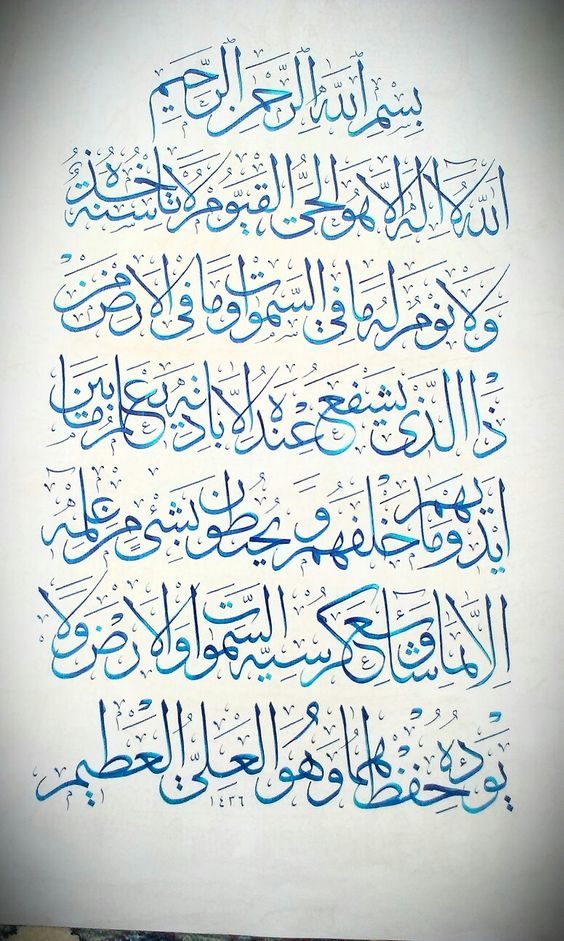 بسم الله الرحمن الرحيم
الله لا اله الا هو الحي القيوم لا تاخذه سنة
ولا نوم له ما في السموات وما في الارض من
ذا الذي يشفع عنده الا باذنه يعلم ما بين
ايديهم وما خلفهم و يحيطون بشئ من علمه
الا بما شاء وسع كرسيه السموات والارض ولا
يؤده حفظهما وهو العلي العظيم
١٤٣٦